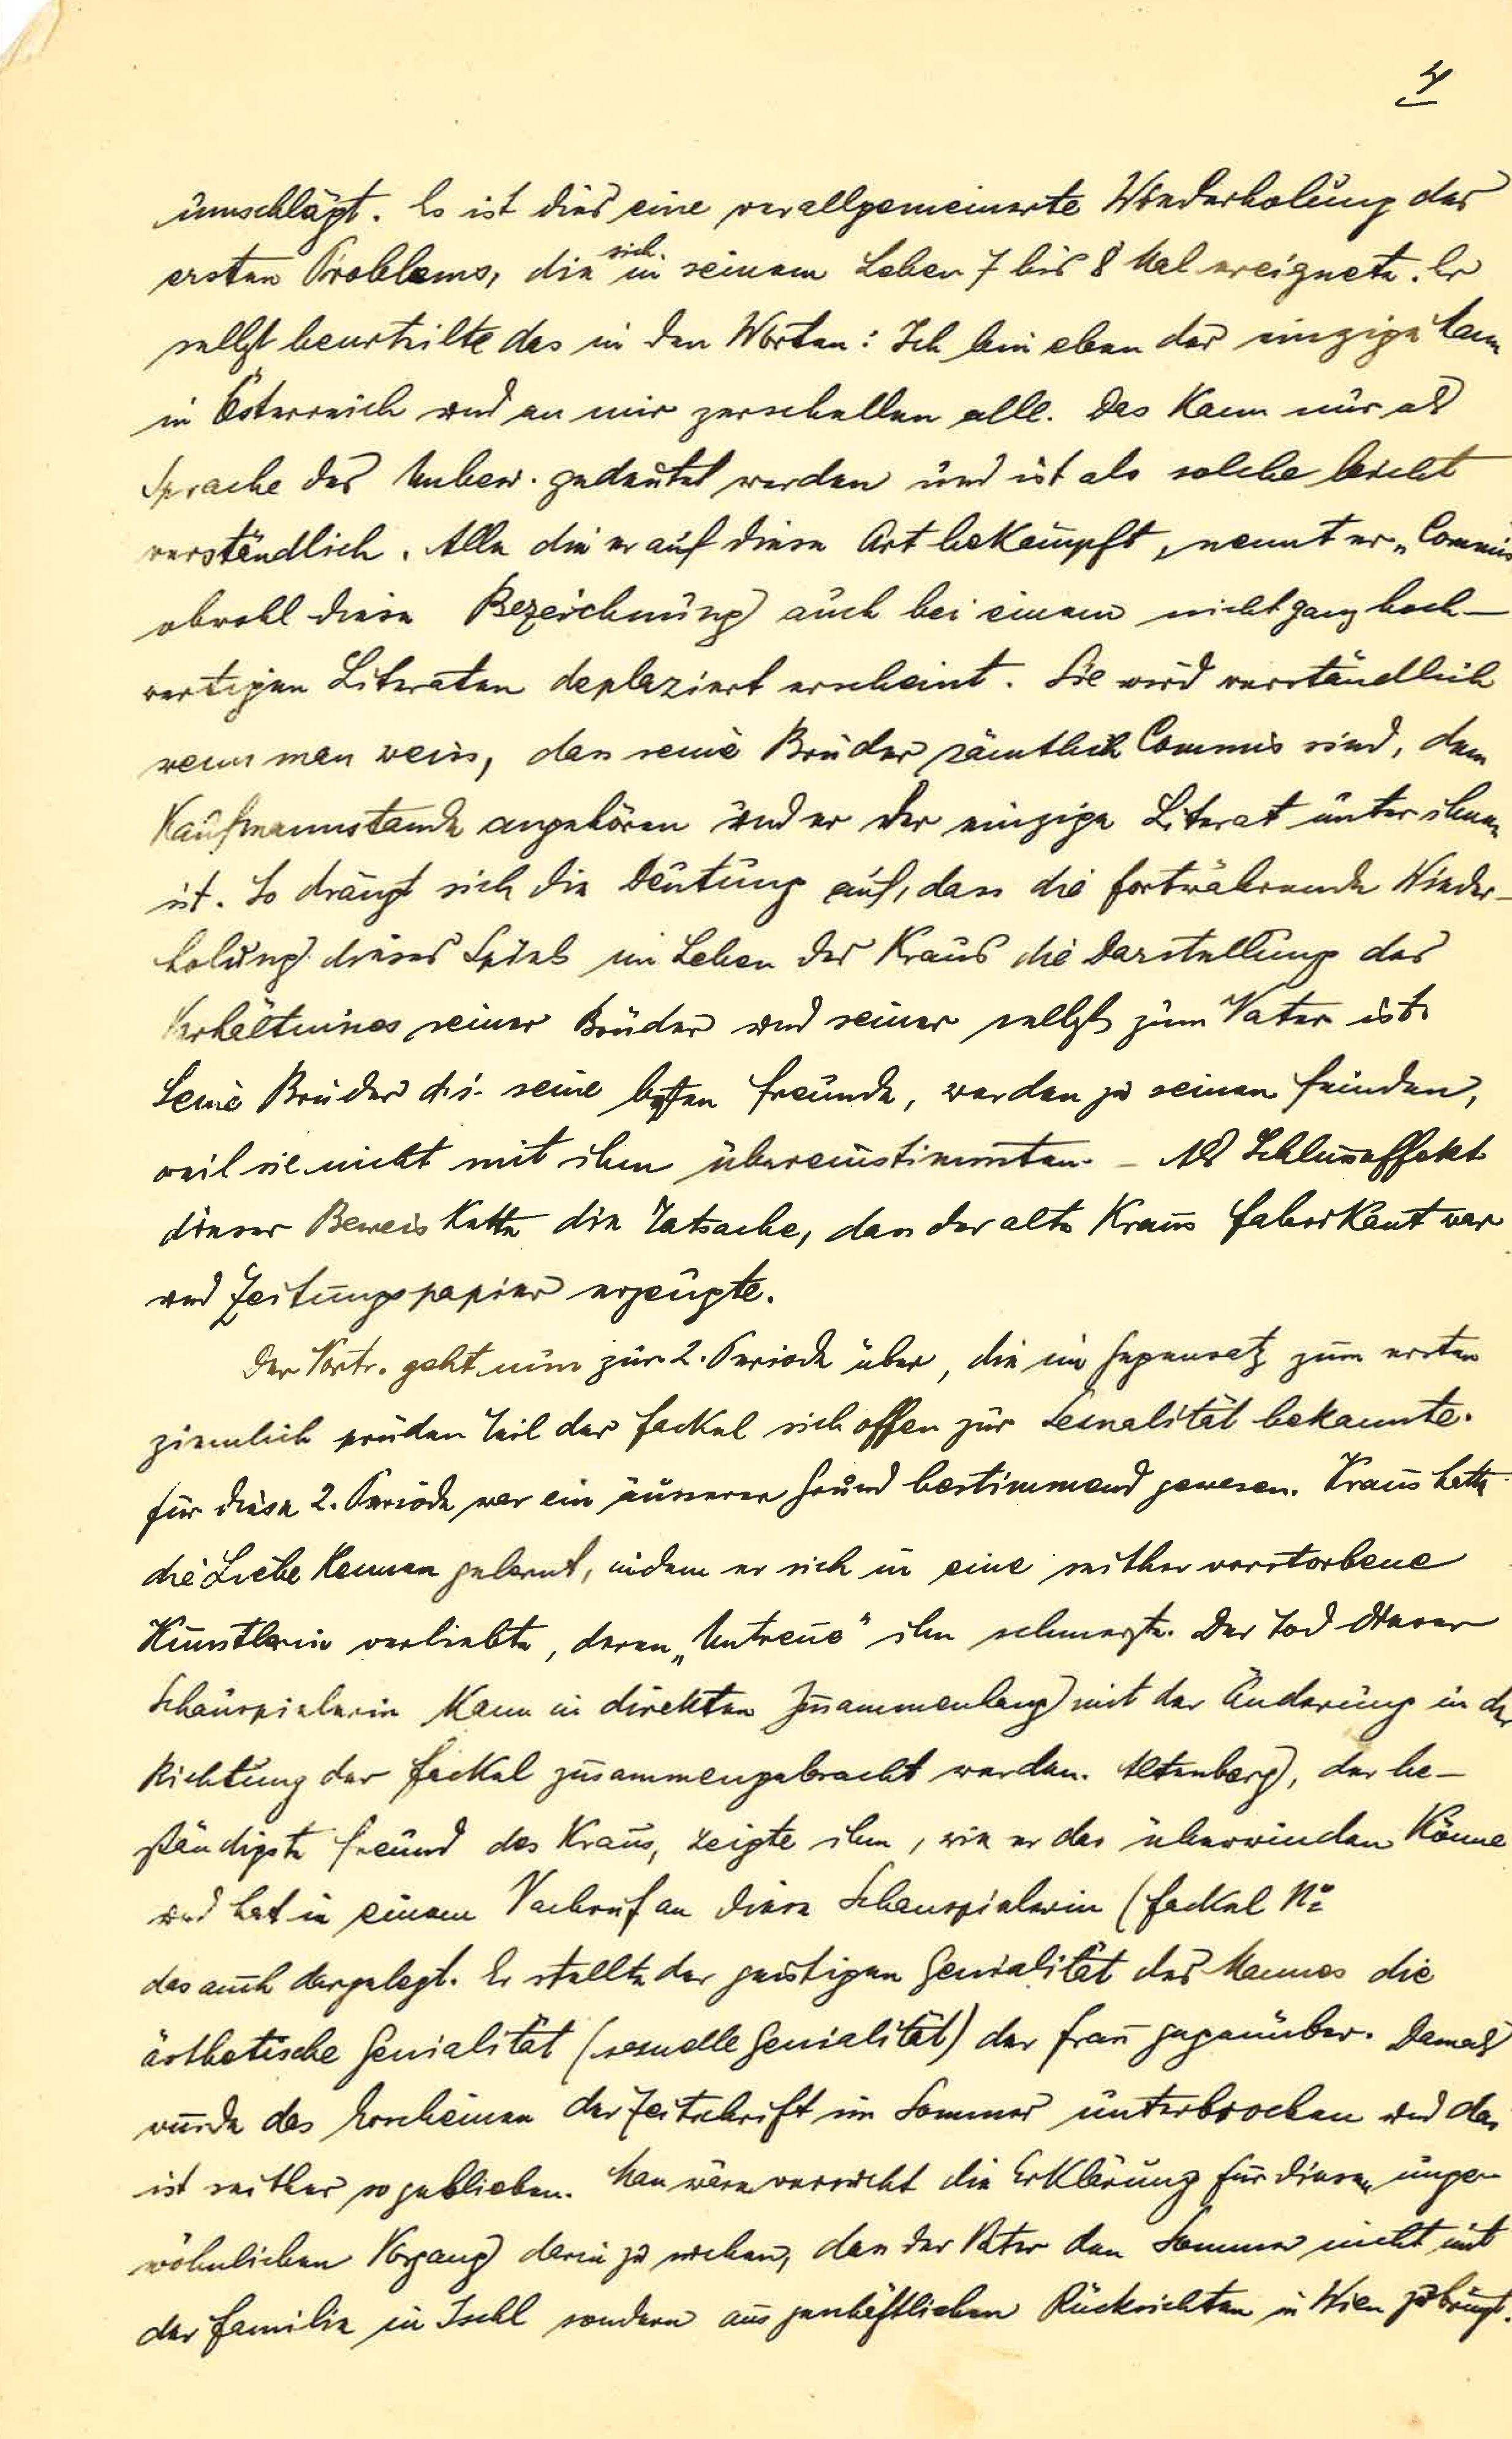 4
umschlägt. Es ist dies eine verallgemeinerte Wiederholung des
ersten Problems, die sich in seinem Leben 7 bis 8 Mal ereignete. Er
selbst beurteilte das in den Worten: Ich bin eben der einzige
in Österreich und an mir zerschellen alle. Das kann nur als
Sprache des Unbew. gedeutet werden und ist als solche leicht
verständlich. Alle die er auf diese Art bekämpft, nennt er „Commis
obwohl diese Bezeichnung auch bei einem nicht ganz hoch-
wertigen Literaten deplaziert erscheint. Sie wird verständlich
wenn man weiss, dass seine Brüder sämtlich Commis sind, dem
Kaufmannstande angehören und er der einzige Literat unter ihnen
ist. So drängt sich die Deutung auf, dass die fortwährende Wieder-
holung dieses Spiels im Leben des Kraus die Darstellung des
Verhältnises seiner Brüder und seiner selbst zum Vater ist.
Seine Brüder d.i. seine besten Freunde, werden zu seinen Feinden,
weil sie nicht mit ihm übereinstimmten. – Als Schlusseffekt
dieser Beweiskette die Tatsache, dass der alte Kraus Fabrikant war
und Zeitungspapier erzeugte.
Der Vortr. geht nun zur 2. Periode über, die im Gegensatz zum ersten
ziemlich prüden Teil der Fackel sich offen zur Sexualität bekannte.
Für diese 2. Periode war ein äusserer Grund bestimmend gewesen. Kraus hatte
die Liebe kennen gelernt, indem er sich in eine seither verstorbene
Künstlerin verliebte, deren „Untreue" ihn schmerzte. Der Tod dieser
Schauspielerin kann in direkten Zusammenhang mit der Änderung in der
Richtung der Fackel zusammengebracht werden. Altenberg, der be-
ständigste Freund des Kraus, zeigte ihm, wie er das überwinden könne
und hat in einem Nachruf an diese Schauspielerin (Fackel No
das auch dargelegt. Er stellte der geistigen Genialität des Mannes die
ästhetische Genialität (sexuelle Genialität) der Frau gegenüber. Damals
wurde das Erscheinen der Zeitschrift im Sommer unterbrochen und das
ist seither so geblieben. Man wäre versucht die Erklärung für diesen unge-
wöhnlichen Vorgang darin zu suchen, dass der Vater den Sommer nicht mit
der Familie in Ischl sondern aus geschäftlichen Rücksichten in Wien zubringt.